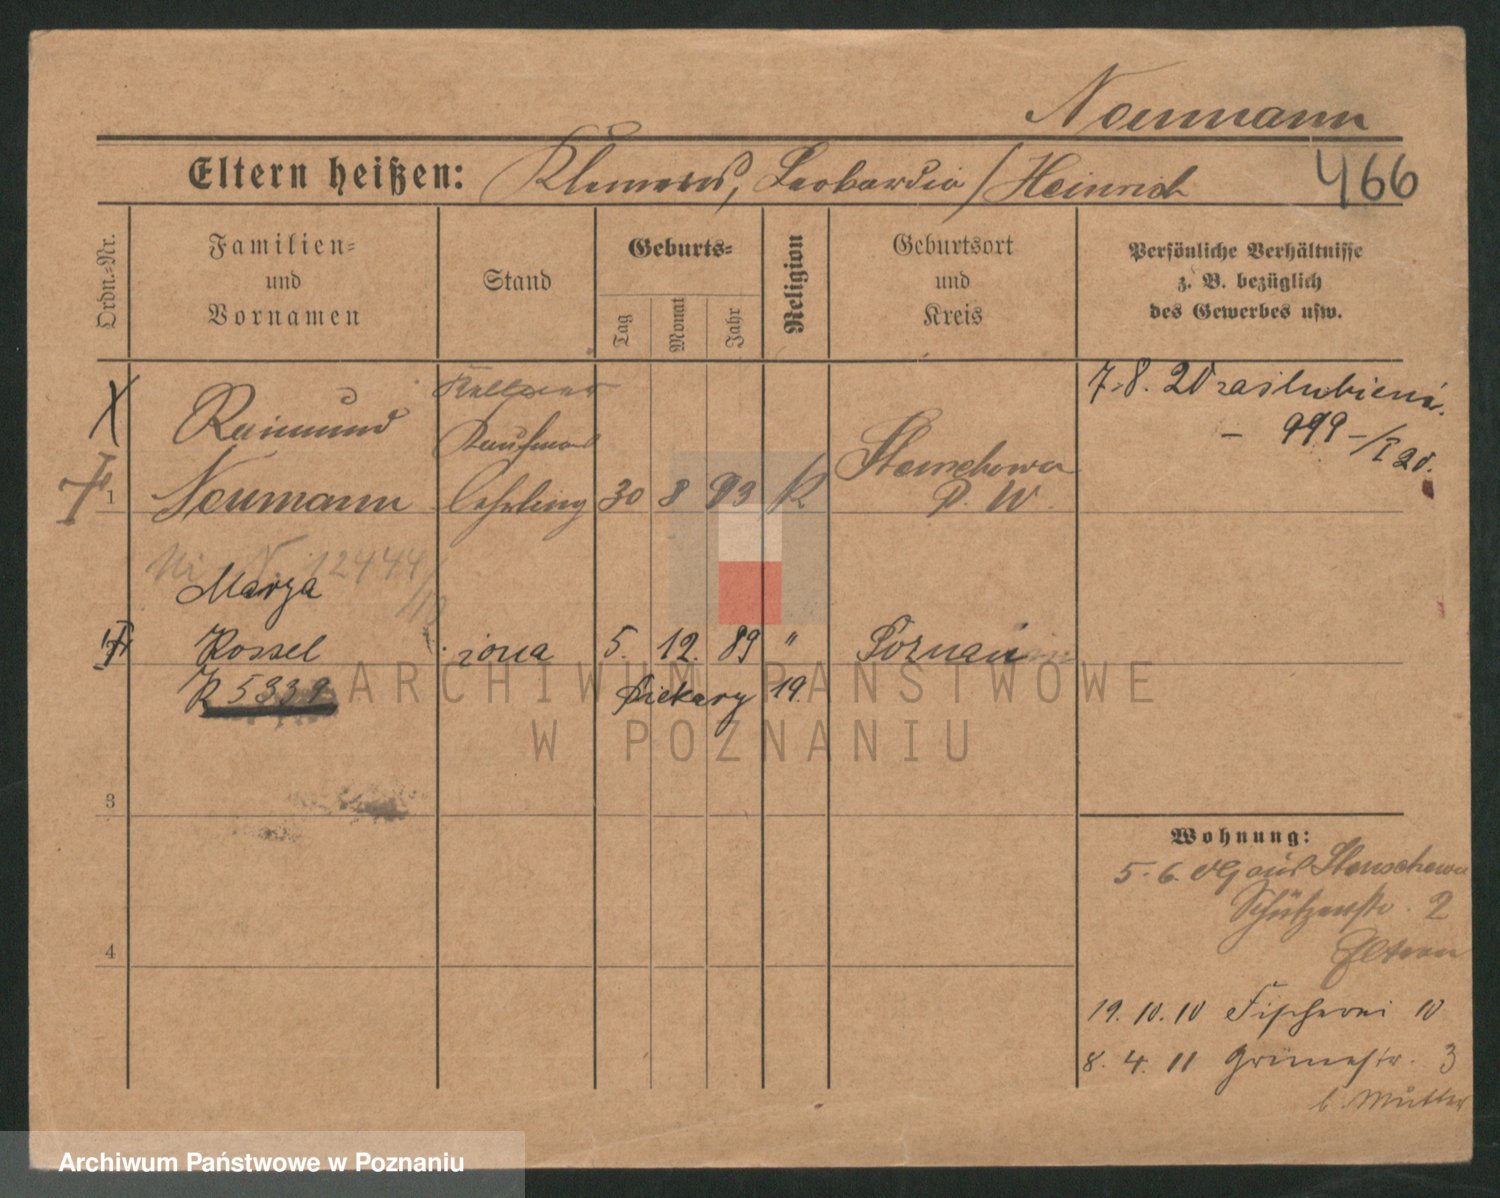 Neumann
Eltern heißen: Klemens, Leokardia / Heinrich 466
Ordn.=Nr.
Familien=
und
Vornamen
Stand
Geburts=
Tag
Monat
Jahr
Religion
Geburtsort
und
Kreis
Persönliche Verhältnisse
z. B. bezüglich
des Gewerbes usw.
7.8.20 zaślubieni
- 999 -/I 20.
Raimund
Kaufmanns
1 Neumann lehrling 30 8 93 K Stenschewo
P. W.
12444/
Marya
Rossel żona 5. 12. 89 " Poznań
R 5339 Piekary 19.
3
4
Wohnung:
5.6. aus Stenschewo
Schützenstr. 2
Eltern
19.10.10 Fischerei 10
8.4.11 Grünestr. 3
b. Mutter
ARCHIWUM PAŃSTWOWE
W POZNANIU
Archiwum Państwowe w Poznaniu